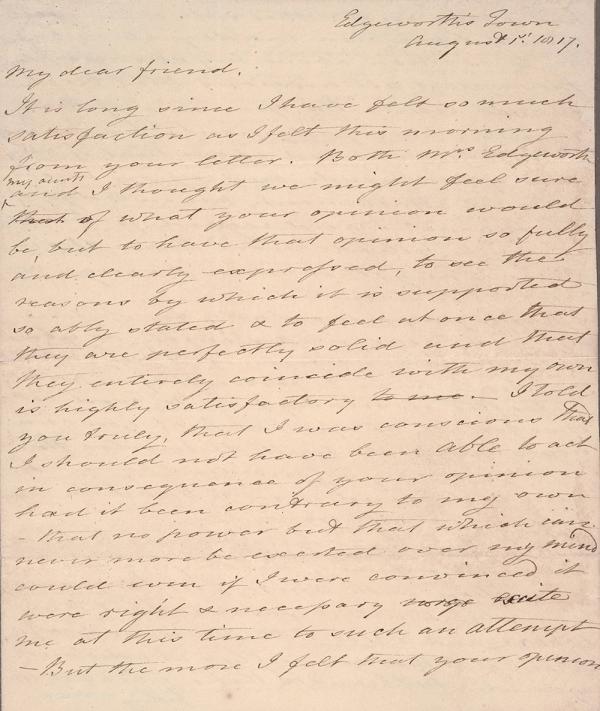 Edgeworth's Town
August 1st. 1817.
My dear friend.
It is long since I have felt so much
satisfaction as I felt this morning
from your letter. Both Mrs Edgeworth
my aunts
and I thought we might feel sure
that of what your opinion would
be, but to have that opinion so fully
and clearly expressed, to see the
reasons by which it is supported
so ably stated & to feel at once that
they are perfectly solid and that
they entirely coincide with my own
is highly satisfactory to me. — I told
you truly, that I was conscious that
I should not have been able to act
in consequence of your opinion
had it been contrary to my own
- that no power but that which can
never more be exerted over my mind
could even if I were convinced it
were right & necessary excite
me at this time to such an attempt
— But the more I felt that your opinion